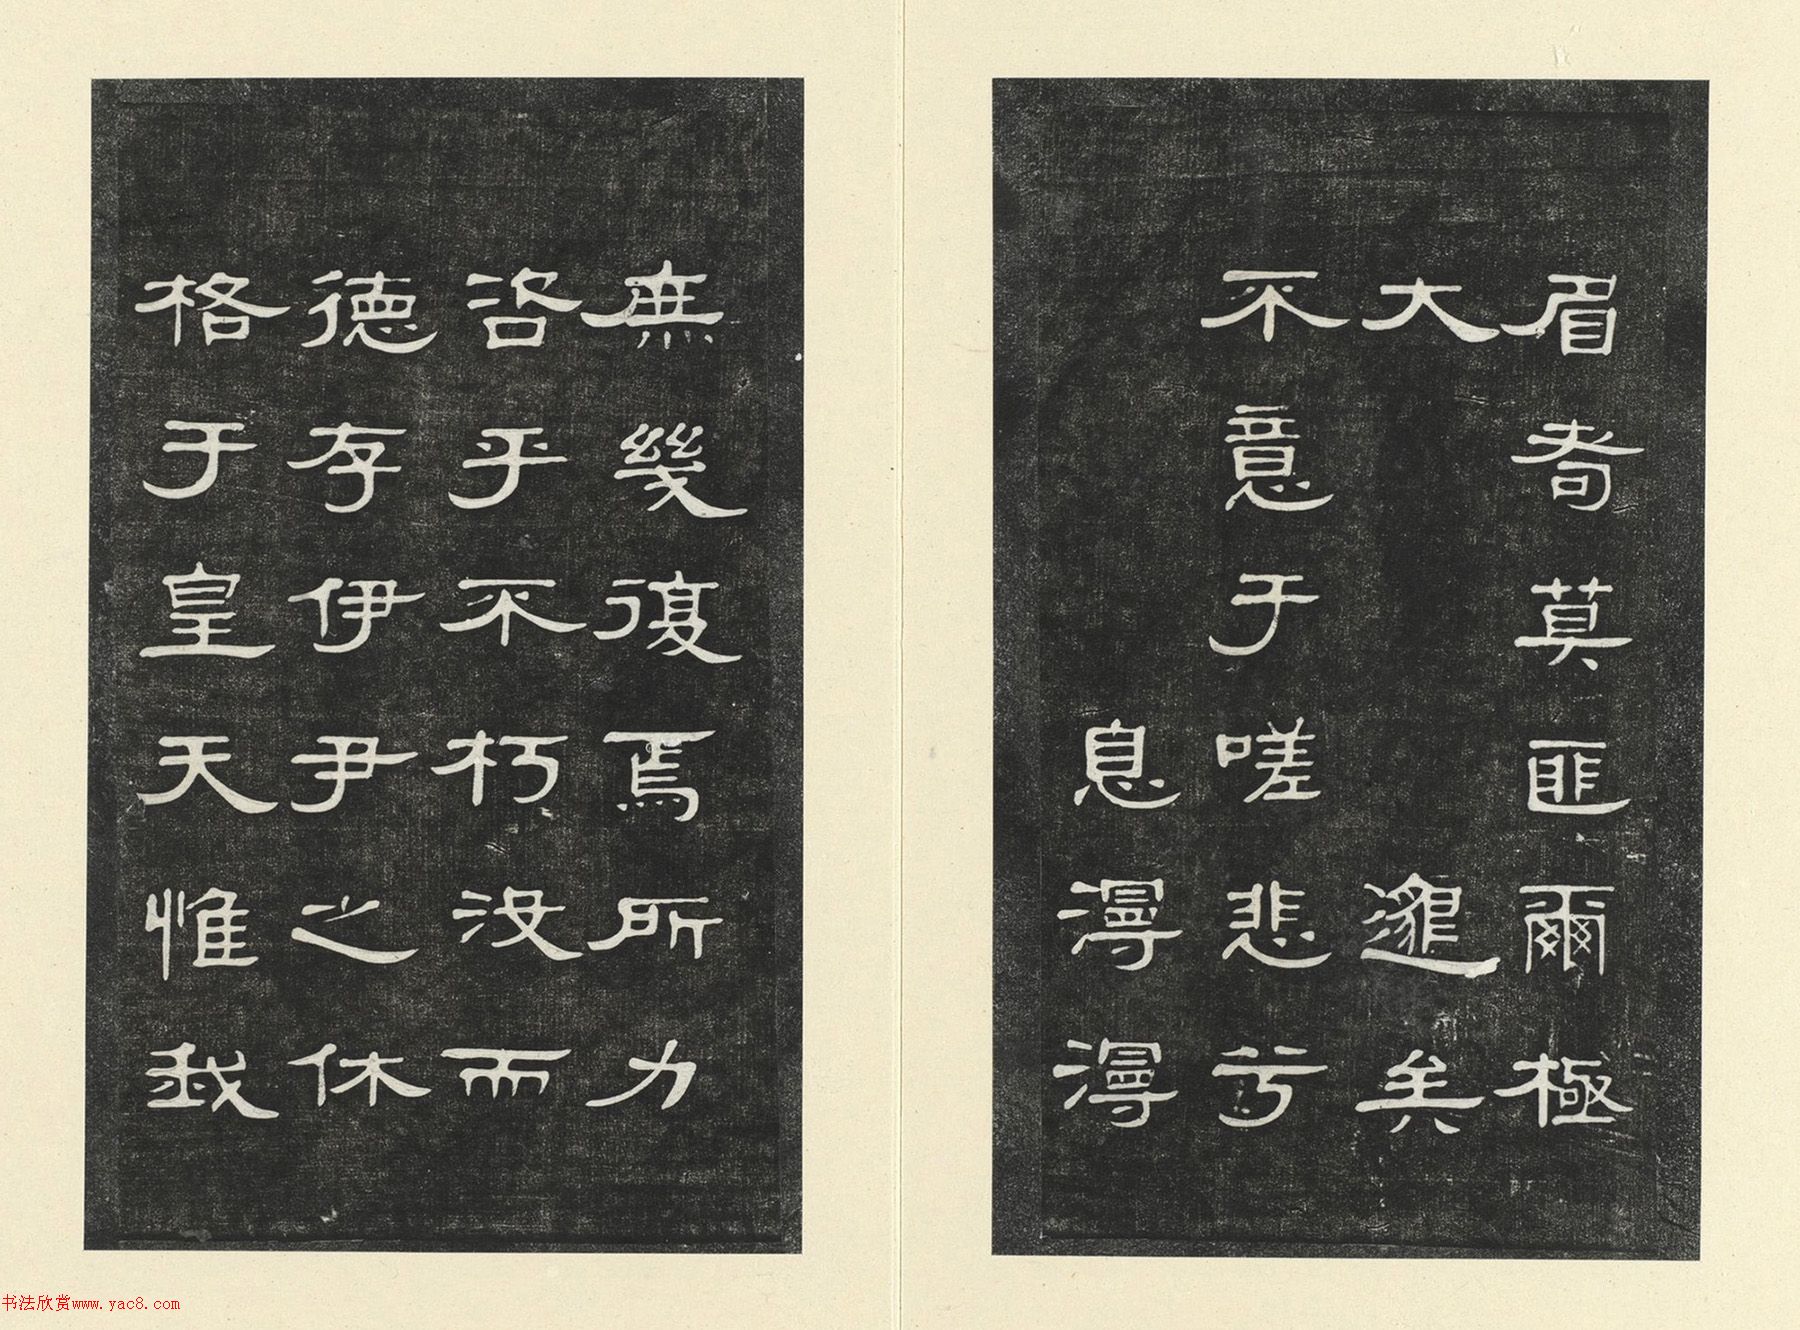 眉耇莫匪爾極
大邈矣
不意于嗟悲兮
息漫漫
庶幾復焉所力
咨乎不朽沒而
德存伊尹之休
格于皇天惟我
书法欣赏www.yac8.com